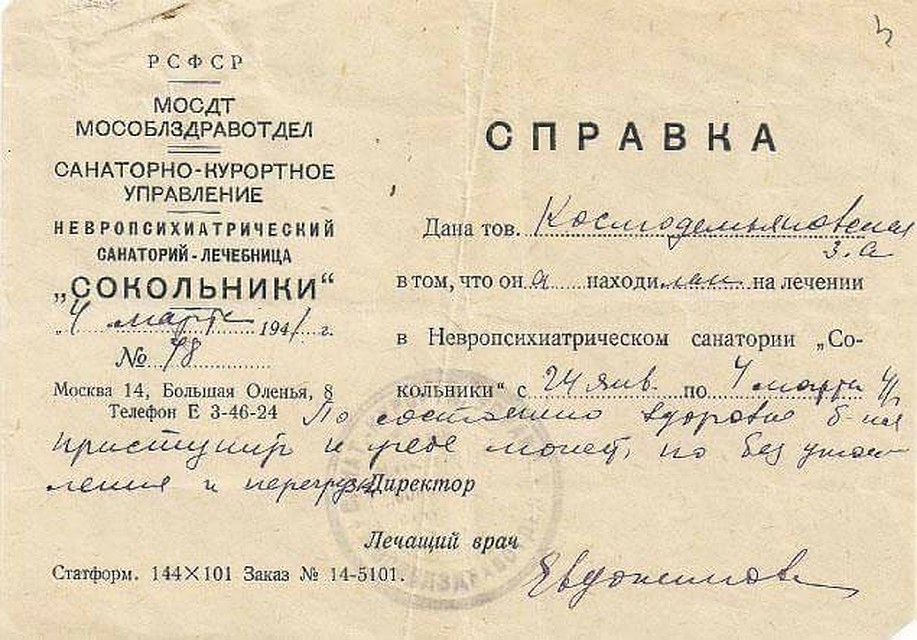 РСФСР
МОСДТ
МОСОБЛЗДРАВОТДЕЛ
САНАТОРНО-КУРОРТНОЕ
УПРАВЛЕНИЕ
НЕВРОПСИХИАТРИЧЕСКИЙ
САНАТОРИЙ-ЛЕЧЕБНИЦА
„СОКОЛЬНИКИ“
„4 марта 1941 г.
№ 78
Москва 14, Большая Оленья, 8
Телефон Е 3-46-24
СПРАВКА
Дана тов. Космодемьяновская
З. А
в том, что он а находилась на лечении
в Невропсихиатрическом санатории „Со-
кольники“ с 24 янв. по 4 марта 41
По состоянию здоровья б-ная
приступить к учебе может, но без утом-
ления и перегрузки
Директор
Лечащий врач
Евдокимова
Статформ. 144×101 Заказ № 14-5101.